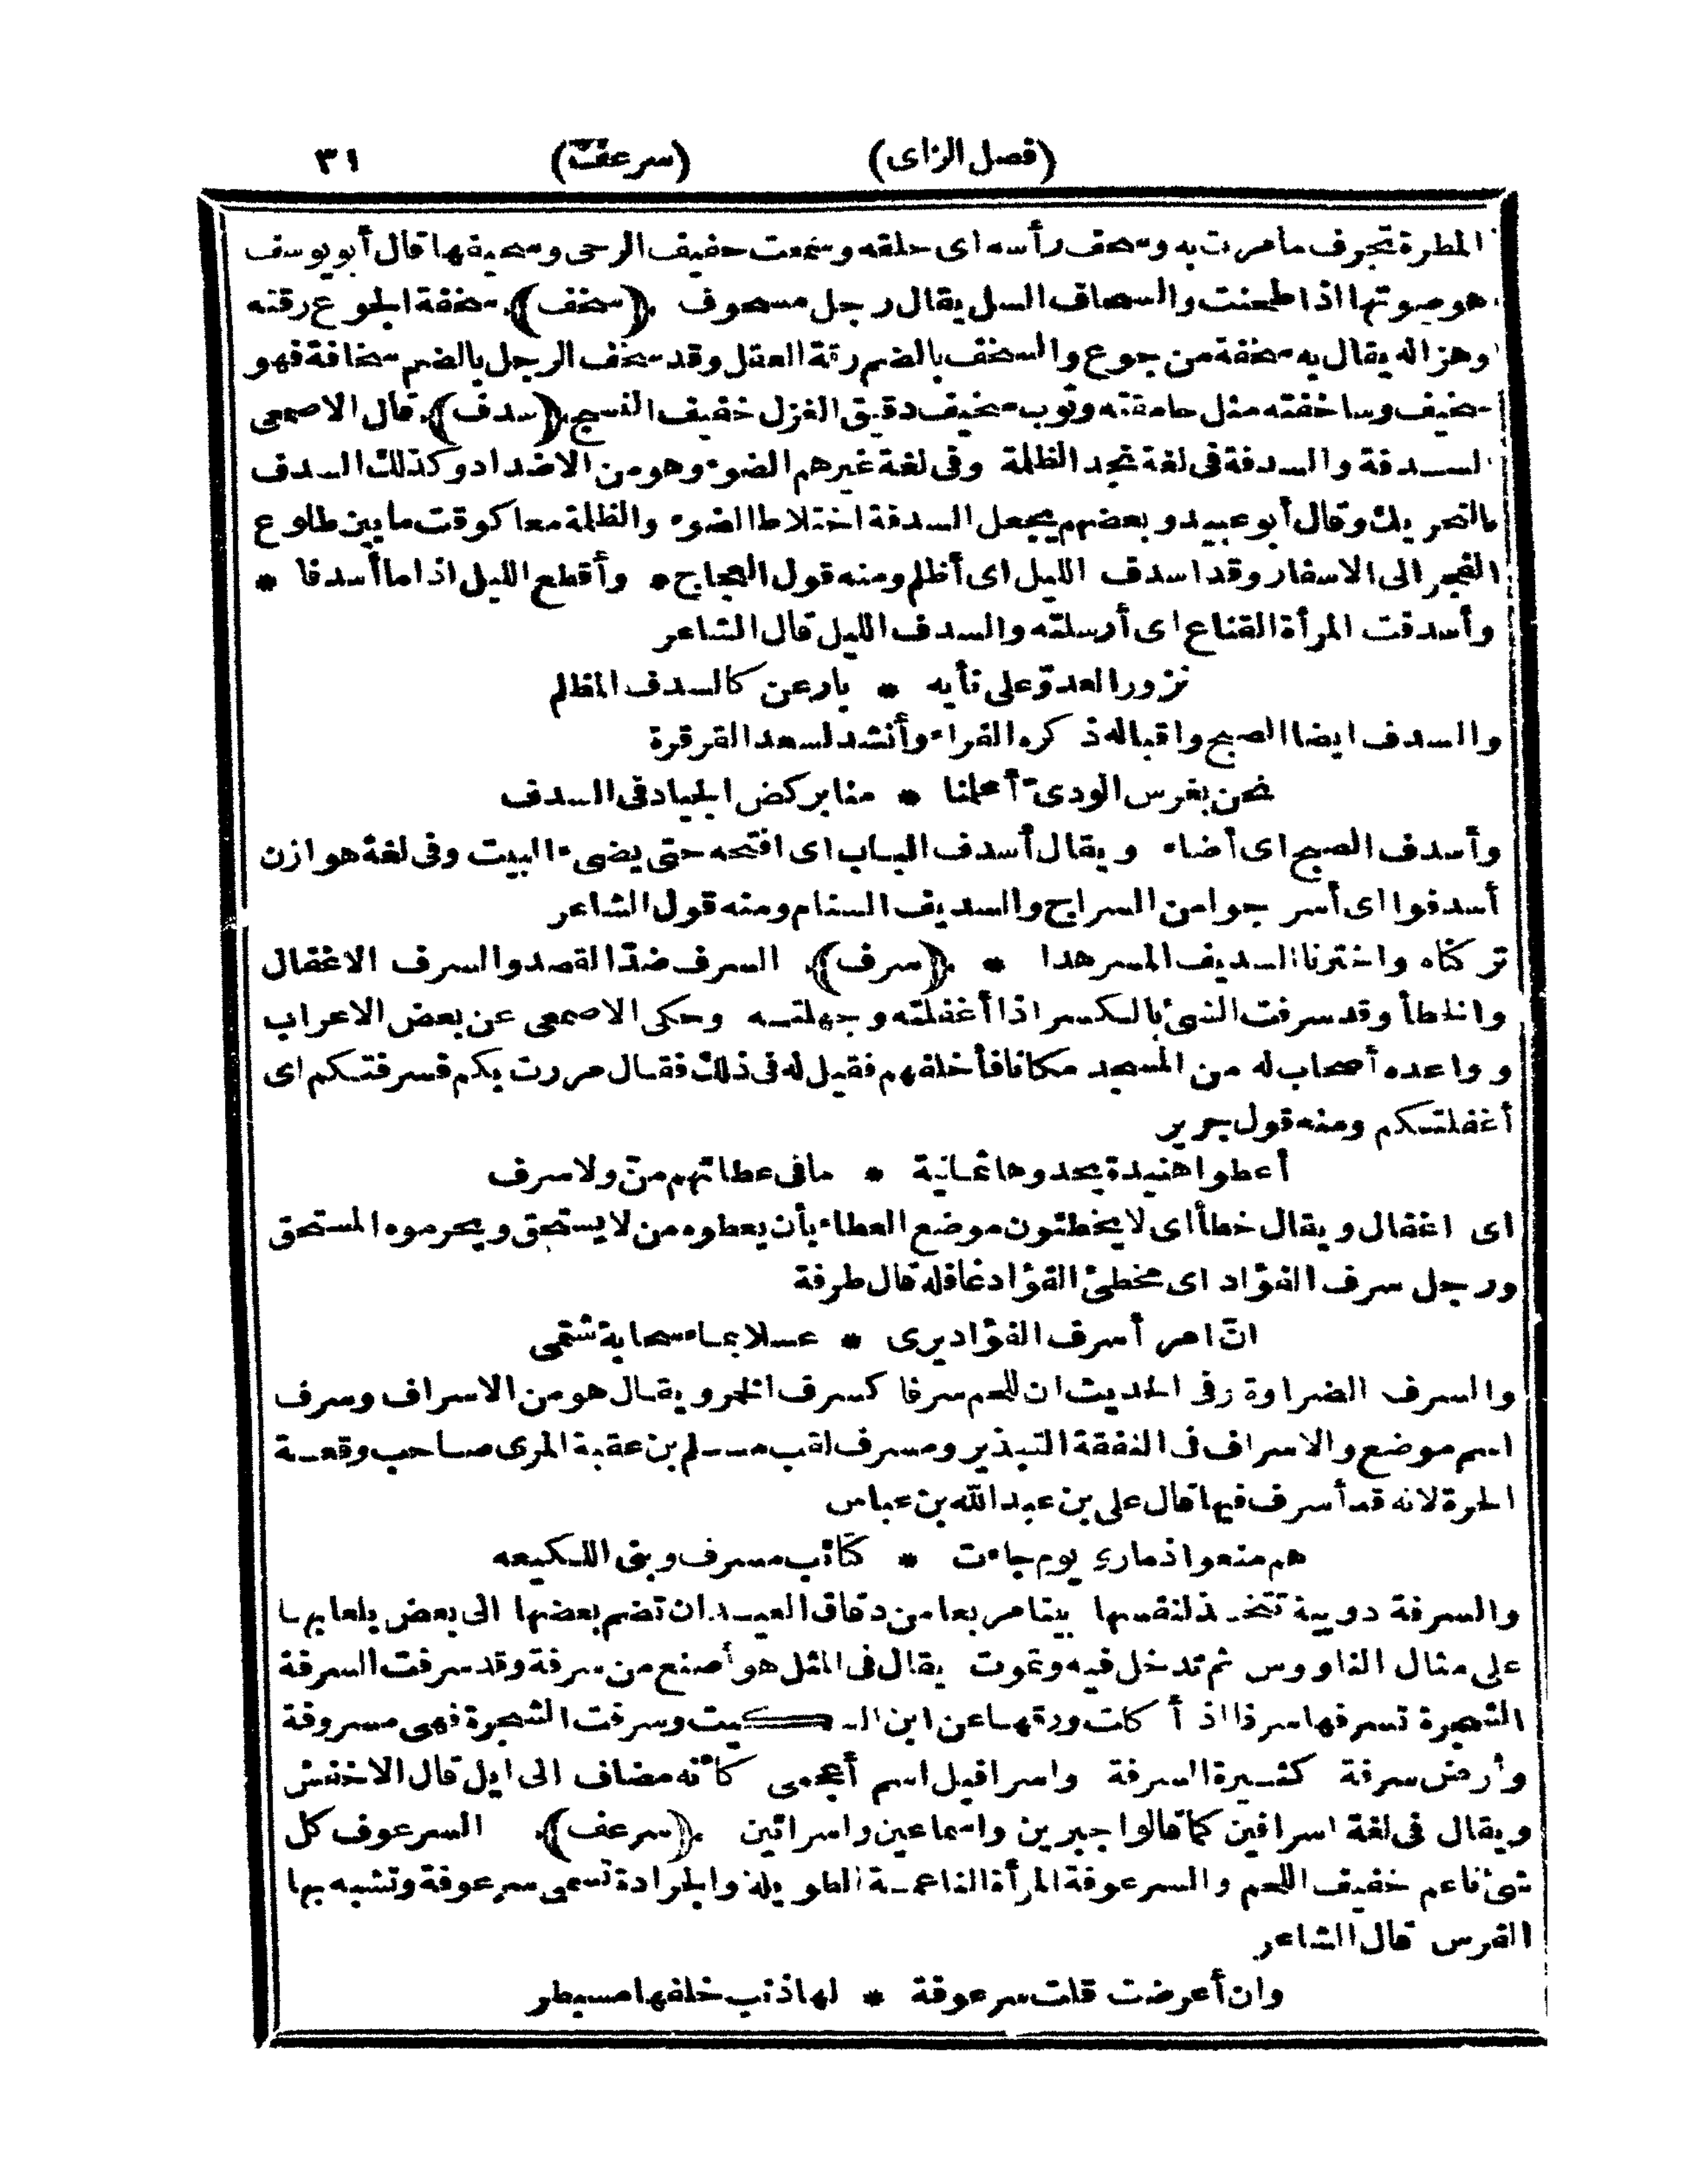 (فصل الزاى) (سرعف) ٣١
المطرة تجرف ما مرت به وسحف رأسه اى حلقه وسمعت حفيف الرحى وسحيفها قال أبو يوسف
هو صوتها اذا طحنت والسحاف السل يقال رجل مسحوف ﴿سخف﴾ سخفة الجوع رقته
وهزاله يقال به سخفة من جوع والسخف بالضم رقة العقل وقد سخف الرجل بالضم سخافة فهو
سخيف وساخفته مثل حامقته وثوب سخيف دقيق الغزل خفيف النسج ﴿سدف﴾ قال الاصمعى
السدفة والسدفة فى لغة نجد الظلمة وفى لغة غيرهم الضوء وهو من الاضداد وكذلك السدف
بالتحريك وقال أبو عبيد وبعضهم يجعل السدفة اختلاط الضوء والظلمة معا كوقت ما بين طلوع
الفجر الى الاسفار وقد اسدف الليل اى أظلم ومنه قول العجاج * وأقطع الليل اذا ما أسدفا *
وأسدفت المرأة القناع اى أرسلته والسدف الليل قال الشاعر
نزور العدوّ على نأيه * بارعن كالسدف المظلم
والسدف ايضا الصبح واقباله ذكره الفراء وأنشد لسعد القرقرة
نحن بغرس الودىّ أعلمنا * منا بركض الجياد فى السدف
وأسدف الصبح اى أضاء ويقال أسدف الباب اى افتحه حتى يضىء البيت وفى لغة هوازن
أسدفوا اى أسرجوا من السراج والسديف السنام ومنه قول الشاعر
تركناه واخترنا السديف المسرهدا * ﴿سرف﴾ السرف ضدّ القصد والسرف الاغفال
والخطأ وقد سرفت الشئ بالكسر اذا أغفلته وجهلته وحكى الاصمعى عن بعض الاعراب
وواعده أصحاب له من المسجد مكانا فأخلفهم فقيل له فى ذلك فقال مررت بكم فسرفتكم اى
أغفلتكم ومنه قول جرير
أعطوا هنيدة يحدوها ثمانية * ما فى عطائهم منّ ولا سرف
اى اغفال ويقال خطأ اى لا يخطئون موضع العطاء بأن يعطوه من لا يستحق ويحرموه المستحق
ورجل سرف الفؤاد اى مخطئ الفؤاد غافله قال طرفة
انّ امرأ سرف الفؤاد يرى * عسلا بماء سحابة شتمى
والسرف الضراوة وفى الحديث ان للحم سرفا كسرف الخمر ويقال هو من الاسراف وسرف
اسم موضع والاسراف فى النفقة التبذير ومسرف لقب مسلم بن عقبة المرى صاحب وقعة
الحرة لانه قد أسرف فيها قال على بن عبد الله بن عباس
هم منعوا ذمارى يوم جاءت * كتائب مسرف وبنى اللكيعه
والسرفة دويبة تتخذ لنفسها بيتا مربعا من دقاق العيدان تضم بعضها الى بعض بلعابها
على مثال الناووس ثم تدخل فيه وتموت يقال فى المثل هو أصنع من سرفة وقد سرفت السرفة
الشجرة تسرفها سرفا اذ أكلت ورقها عن ابن السكيت وسرفت الشجرة فهى مسروفة
وأرض سرفة كثيرة السرفة واسرافيل اسم أعجمى كأنه مضاف الى ايل قال الاخفش
ويقال فى لغة اسرافين كما قالوا جبرين واسماعين واسرائين ﴿سرعف﴾ السرعوف كل
شئ ناعم خفيف اللحم والسرعوفة المرأة الناعمة الطويلة والجرادة تسمى سرعوفة وتشبه بها
الفرس قال الشاعر
وان أعرضت قلت سرعوفة * لها ذنب خلفها مسبطر